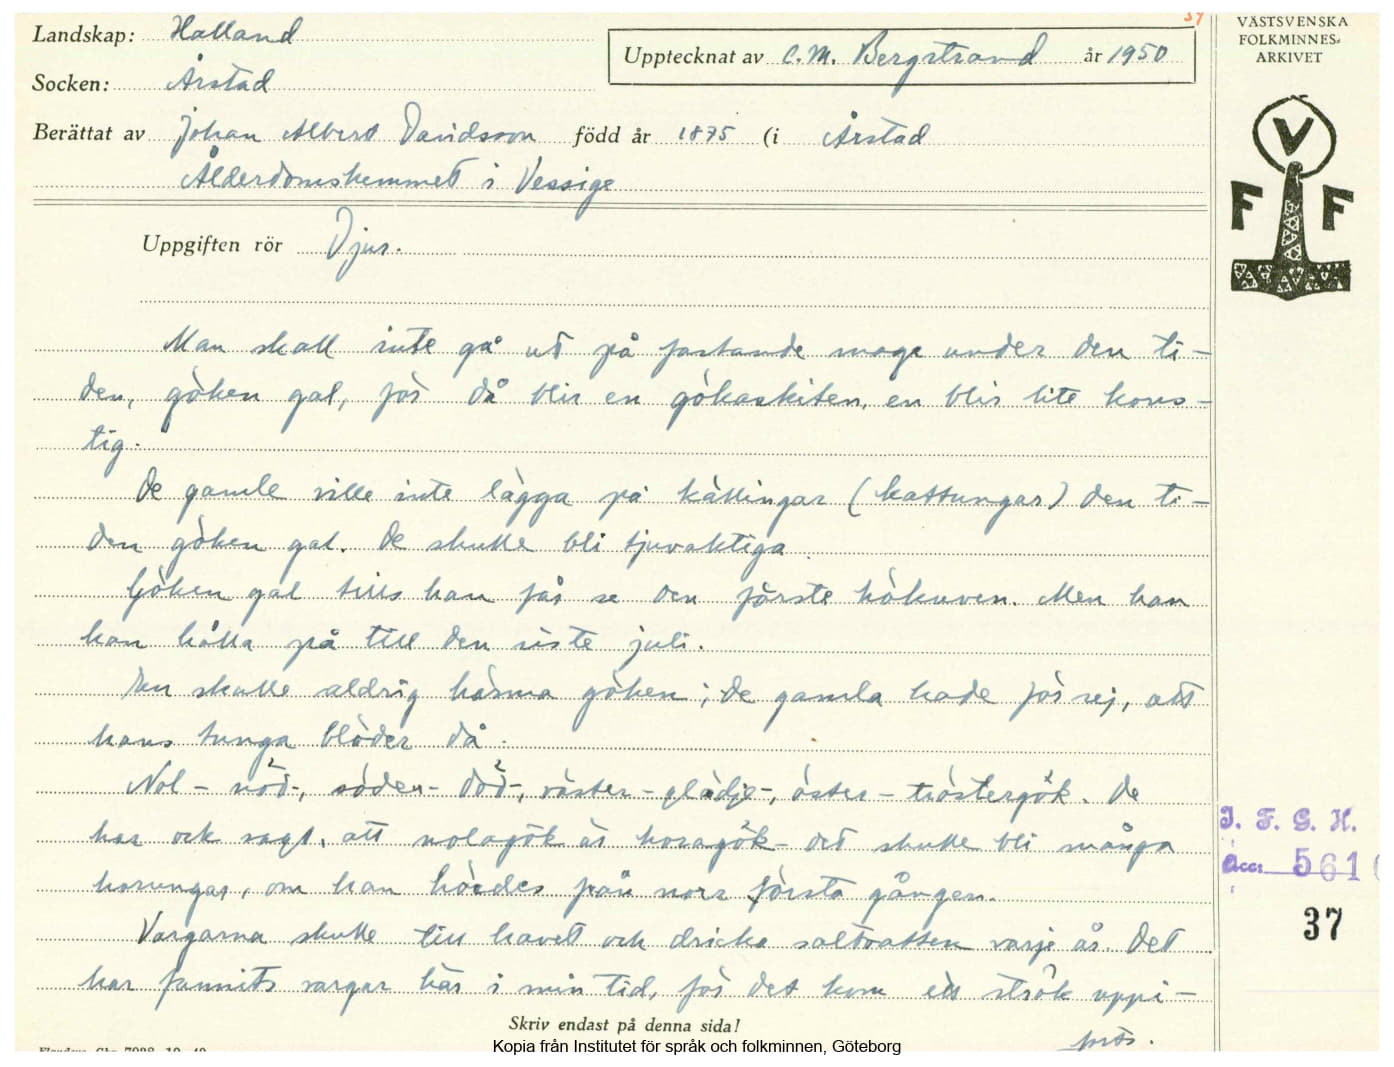 Landskap: Halland
Socken: Årstad
Upptecknat av C.M. Bergstrand år 1950
Berättat av Johan Albert Davidsson född år 1875 (i Årstad
Ålderdomshemmet i Vessige
Uppgiften rör Djur.
Man skall inte gå ut på fastande mage under den ti-
den, göken gal, för då blir en gökaskiten, en blir lite kons-
tig.
De gamle ville inte lägga på källingar (kattungar) den ti-
den göken gal. De skulle bli tjuvaktiga.
Göken gal tills han får se den förste hökuven. Men han
kan hålla på till den siste juli.
En skulle aldrig härma göken; de gamla hade för sej, att
hans tunga blöder då.
Nol- nöd-, söder- död-, väster- glädje-, öster- tröstergök. De
har ock sagt, att nolagök är horagök - det skulle bli många
horungar, om han hördes från norr första gången.
Vargarna skulle till havet och dricka saltvatten varje år. Det
har funnits vargar här i min tid, för det kom ett stråk uppi-
frås.
Skriv endast på denna sida!
VÄSTSVENSKA
FOLKMINNES-
ARKIVET
V
F F
I. F. G. H.
Acc: 561
37
Kopia från Institutet för språk och folkminnen, Göteborg